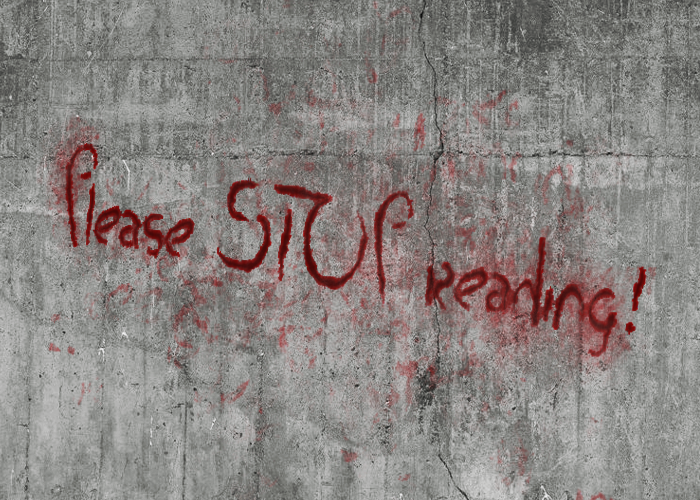 Please STOP Reading!